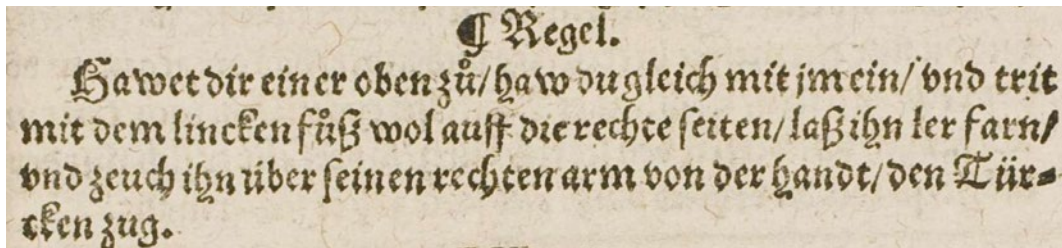 ¶ Regel.
Hawet dir einer oben zů/ haw du gleich mit jm ein/ vnd trit
mit dem lincken fůß wol auff die rechte seiten/ laß ihn ler farn/
vnd zeuch ihn über seinen rechten arm von der handt/ den Tür⸗
cken zug.